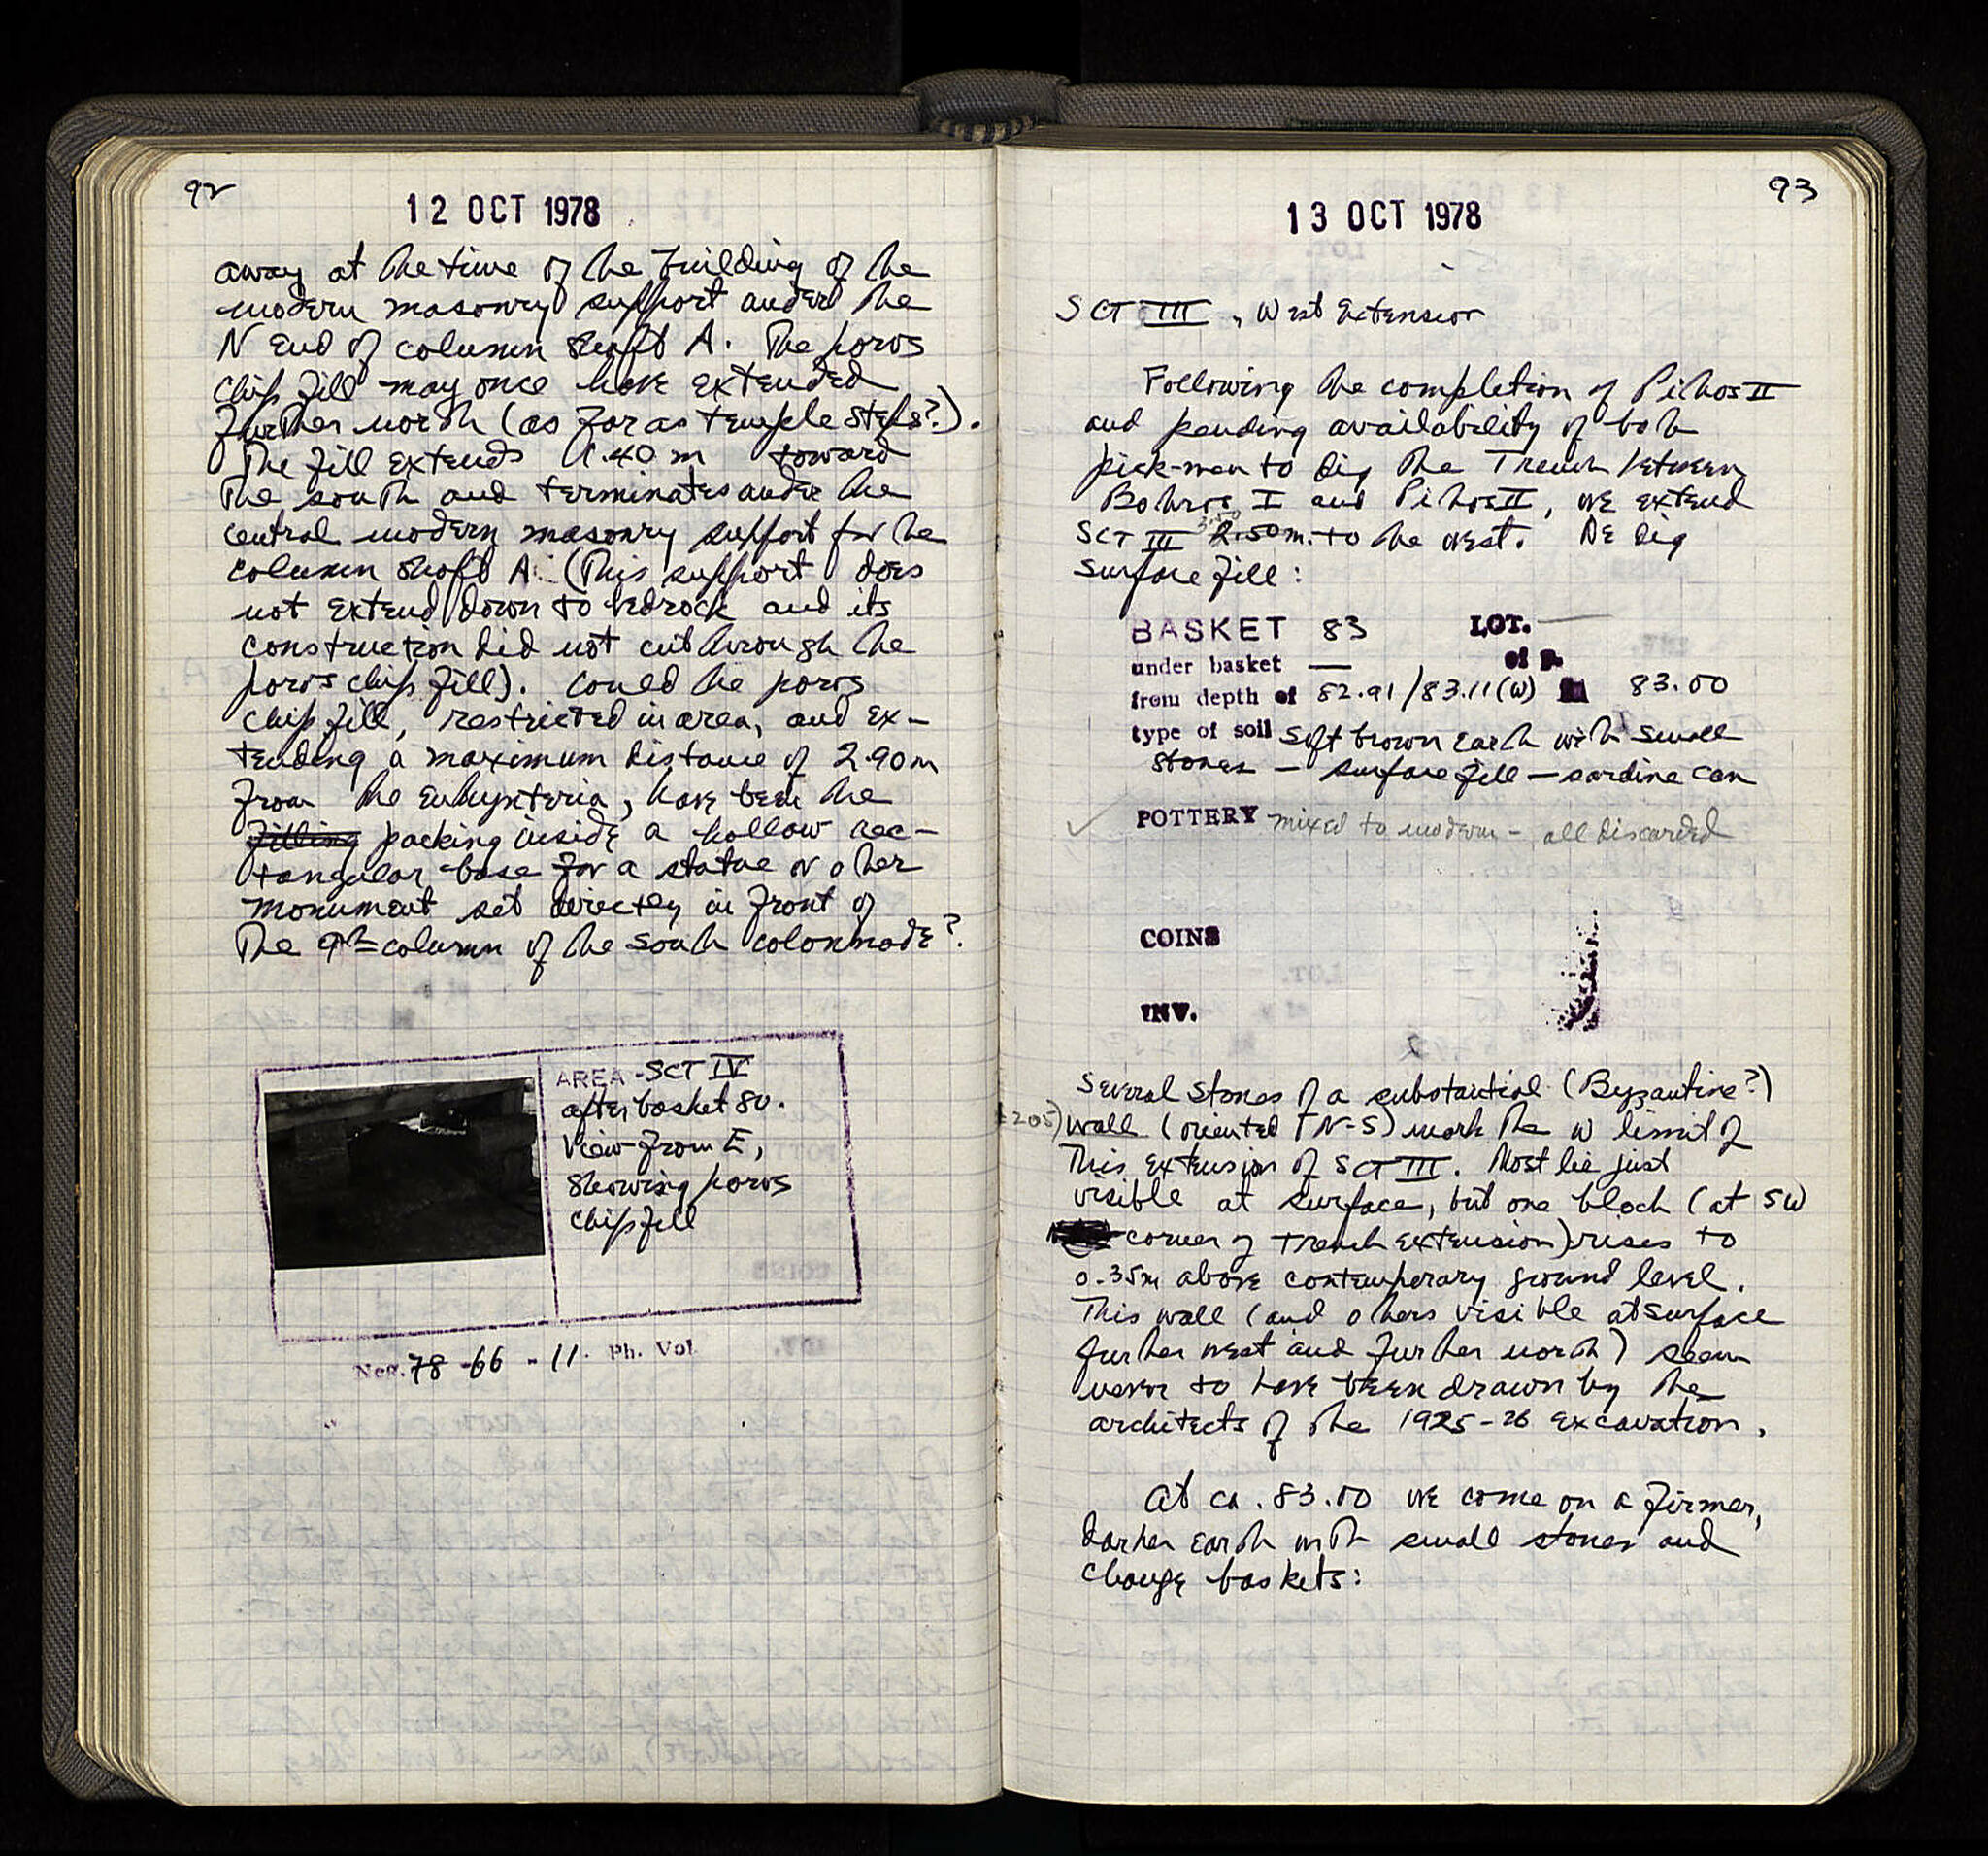 92
12 OCT 1978
away at the time of the building of the
modern masonry support under the
N End of column shaft A. The poros
chip fill may once have extended
further north (as far as temple steps?).
The fill extends 1.40 m toward
the south and terminates under the
central modern masonry support for the
column shaft A. (This support does
not extend down to bedrock and its
construction did not cut through the
poros chip fill). Could the poros
chip fill, restricted in area, and ex-
tending a maximum distance of 2.90m
from the euthynteria, have been the
filling packing inside a hollow rec-
tangular base for a statue or other
monument set directly in front of
the 9th column of the south colonnade?
AREA - SCT IV
after basket 80.
View from E,
showing poros
chip fill
Neg. 78 - 66 - 11. Ph. Vol.
93
13 OCT 1978
SCT III, West Extension
Following the completion of Pithos II
and pending availability of both
pick-men to dig the Trench between
Bothros I and Pithos II, we extend
SCT III 2.50m. to the west. We dig
surface fill:
BASKET 83 LOT. —
under basket — of p.
from depth of 82.91/83.11(W) 83.00
type of soil soft brown earth with small
stones - surface fill - sardine can
POTTERY mixed to modern - all discarded
COINS
INV.
Several stones of a substantial (Byzantine?)
205) wall (oriented N-S) mark the W limit of
this extension of SCT III. Most lie just
visible at surface, but one block (at SW
corner of trench extension) rises to
0.35m above contemporary ground level.
This wall (and others visible at surface
further west and further north) seem
never to have been drawn by the
architects of the 1925-26 excavation.
At ca. 83.00 we come on a firmer,
darker earth with small stones and
change baskets: